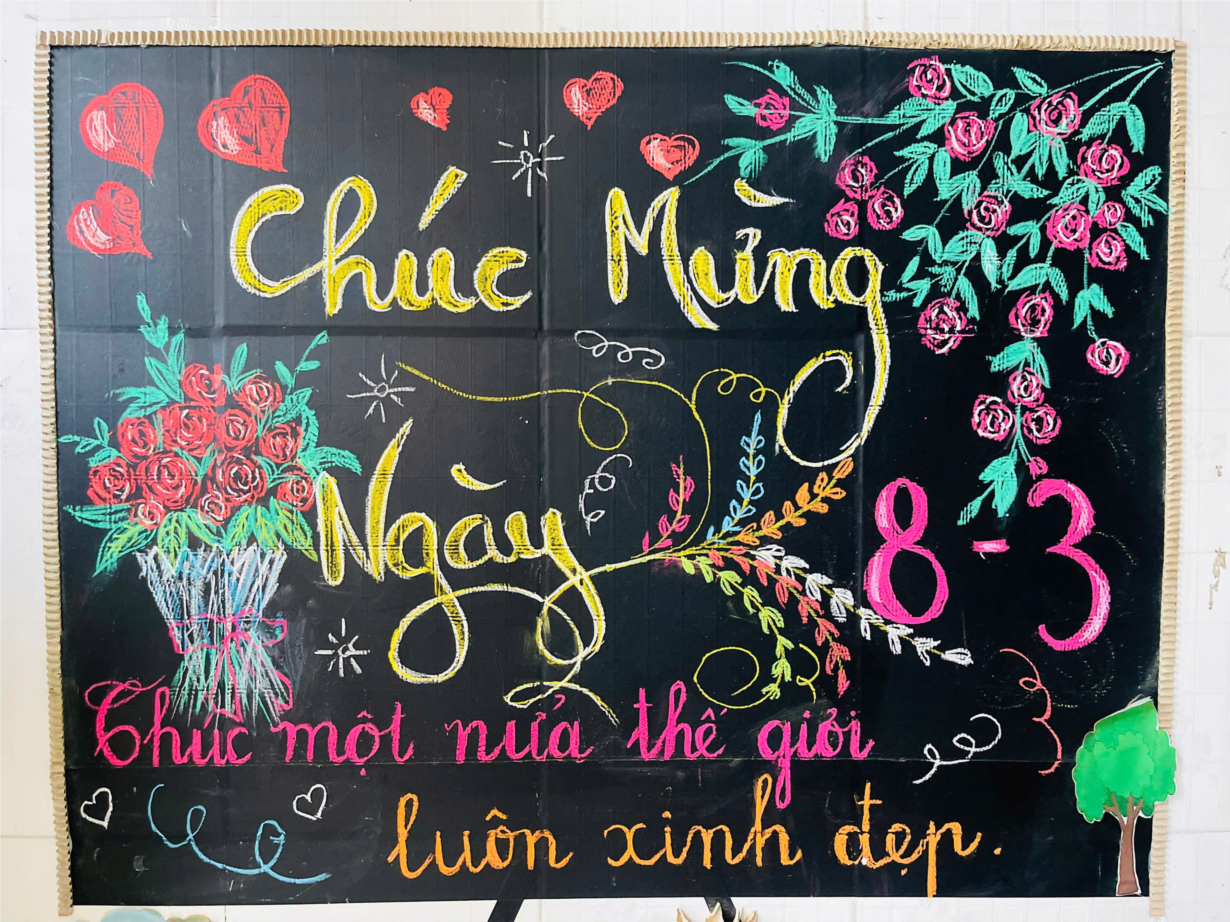 Chúc Mừng
Ngày 8-3
Chúc một nửa thế giới
luôn xinh đẹp.